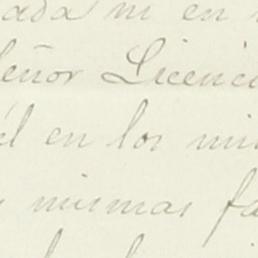 ada ni en
eñor Licenci
él en los mis
mismas fa